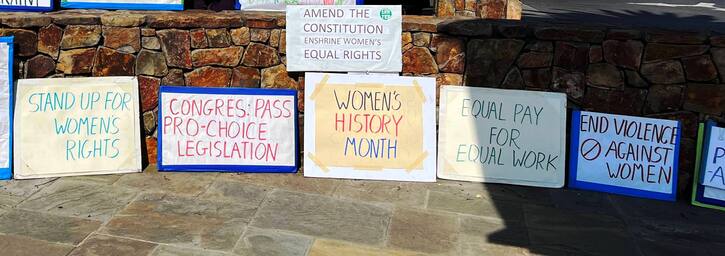 AMEND THE
CONSTITUTION
ENSHRINE WOMEN'S
EQUAL RIGHTS
STAND UP FOR
WOMEN'S
RIGHTS
CONGRES: PASS
PRO-CHOICE
LEGISLATION
WOMEN'S
HISTORY
MONTH
EQUAL PAY
FOR
EQUAL WORK
END VIOLENCE
AGAINST
WOMEN